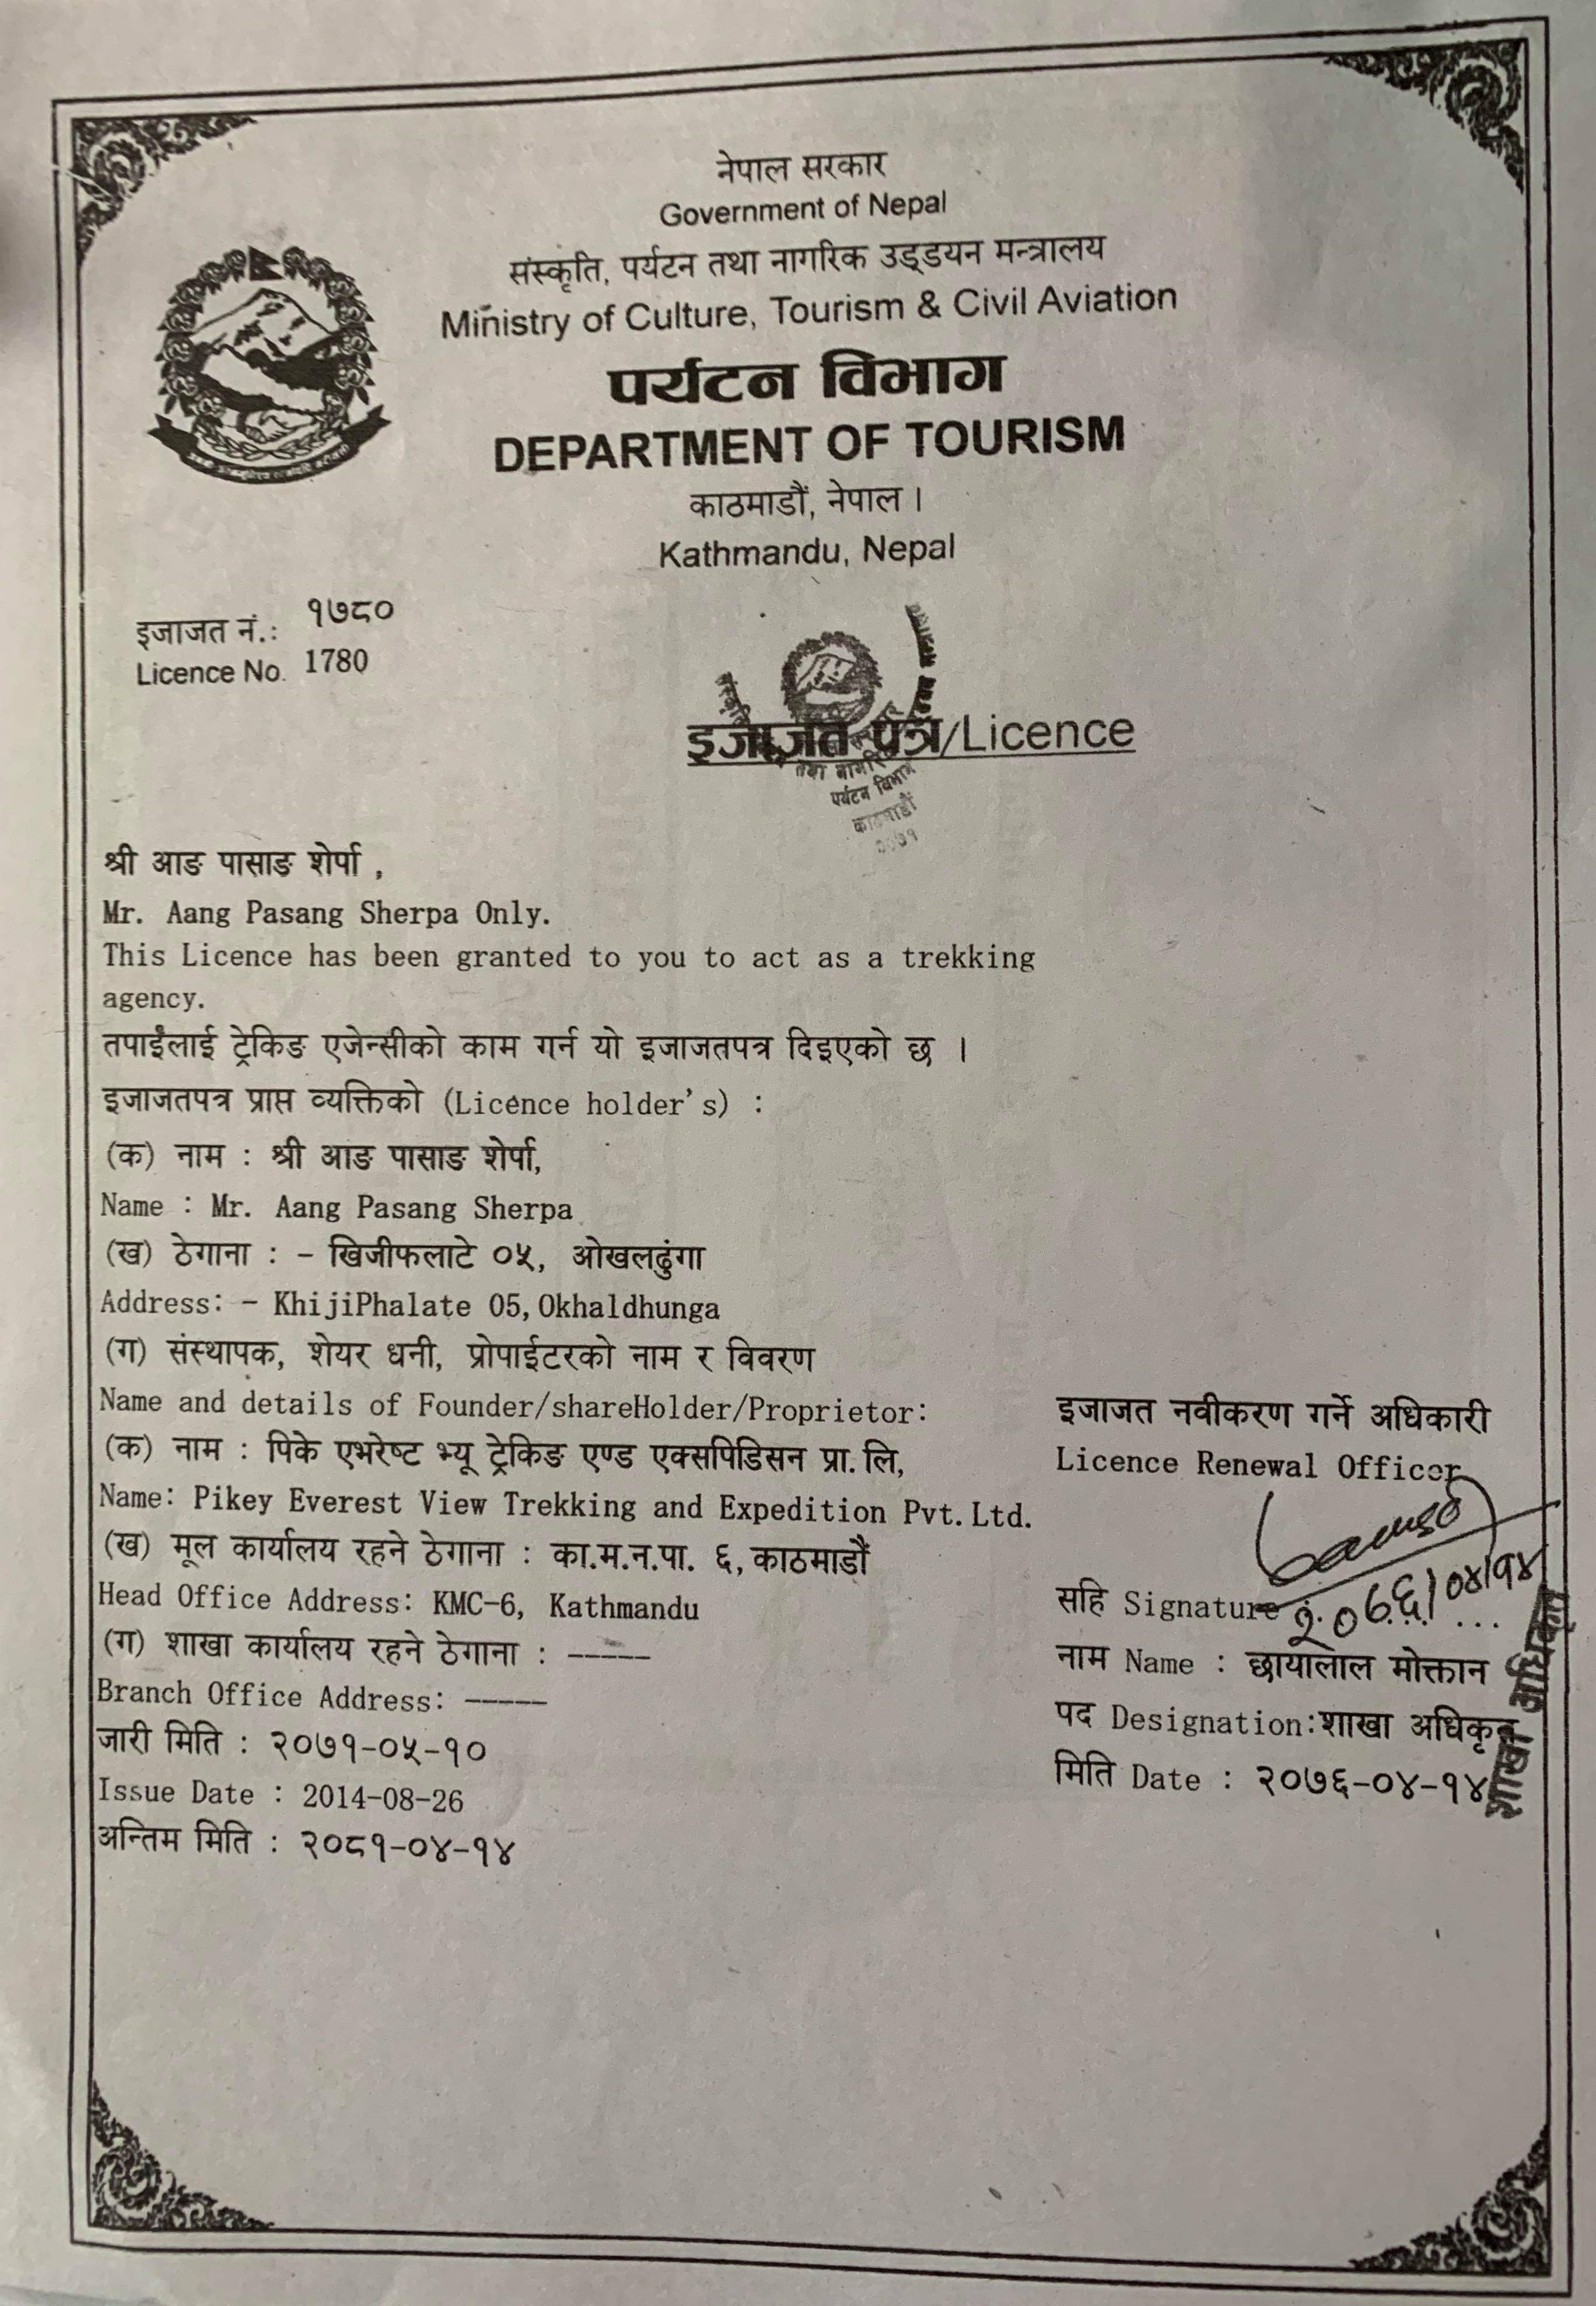 नेपाल सरकार
Government of Nepal
संस्कृति, पर्यटन तथा नागरिक उड्डयन मन्त्रालय
Ministry of Culture, Tourism & Civil Aviation
पर्यटन विभाग
DEPARTMENT OF TOURISM
काठमाडौं, नेपाल ।
Kathmandu, Nepal
इजाजत नं.: १७८०
Licence No. 1780
इजाजत पत्र/Licence
तथा नागरिक
पर्यटन विभाग
काठमाडौं
२०७१
श्री आङ पासाङ शेर्पा ,
Mr. Aang Pasang Sherpa Only.
This Licence has been granted to you to act as a trekking
agency.
तपाईंलाई ट्रेकिङ एजेन्सीको काम गर्न यो इजाजतपत्र दिइएको छ ।
इजाजतपत्र प्राप्त व्यक्तिको (Licence holder's) :
(क) नाम : श्री आङ पासाङ शेर्पा,
Name : Mr. Aang Pasang Sherpa
(ख) ठेगाना : - खिजीफलाटे ०५, ओखलढुंगा
Address: - KhijiPhalate 05,Okhaldhunga
(ग) संस्थापक, शेयर धनी, प्रोपाईटरको नाम र विवरण
Name and details of Founder/shareHolder/Proprietor:
(क) नाम : पिके एभरेष्ट भ्यू ट्रेकिङ एण्ड एक्सपिडिसन प्रा.लि,
Name: Pikey Everest View Trekking and Expedition Pvt.Ltd.
(ख) मूल कार्यालय रहने ठेगाना : का.म.न.पा. ६, काठमाडौं
Head Office Address: KMC-6, Kathmandu
(ग) शाखा कार्यालय रहने ठेगाना : -----
Branch Office Address: -----
जारी मिति : २०७१-०५-१०
Issue Date : 2014-08-26
अन्तिम मिति : २०८१-०४-१४
इजाजत नवीकरण गर्ने अधिकारी
Licence Renewal Officer
सहि Signature : २०७६/०४/१४
नाम Name : छायालाल मोक्तान
पद Designation:शाखा अधिकृत
मिति Date : २०७६-०४-१४
शाखा अधिकृत